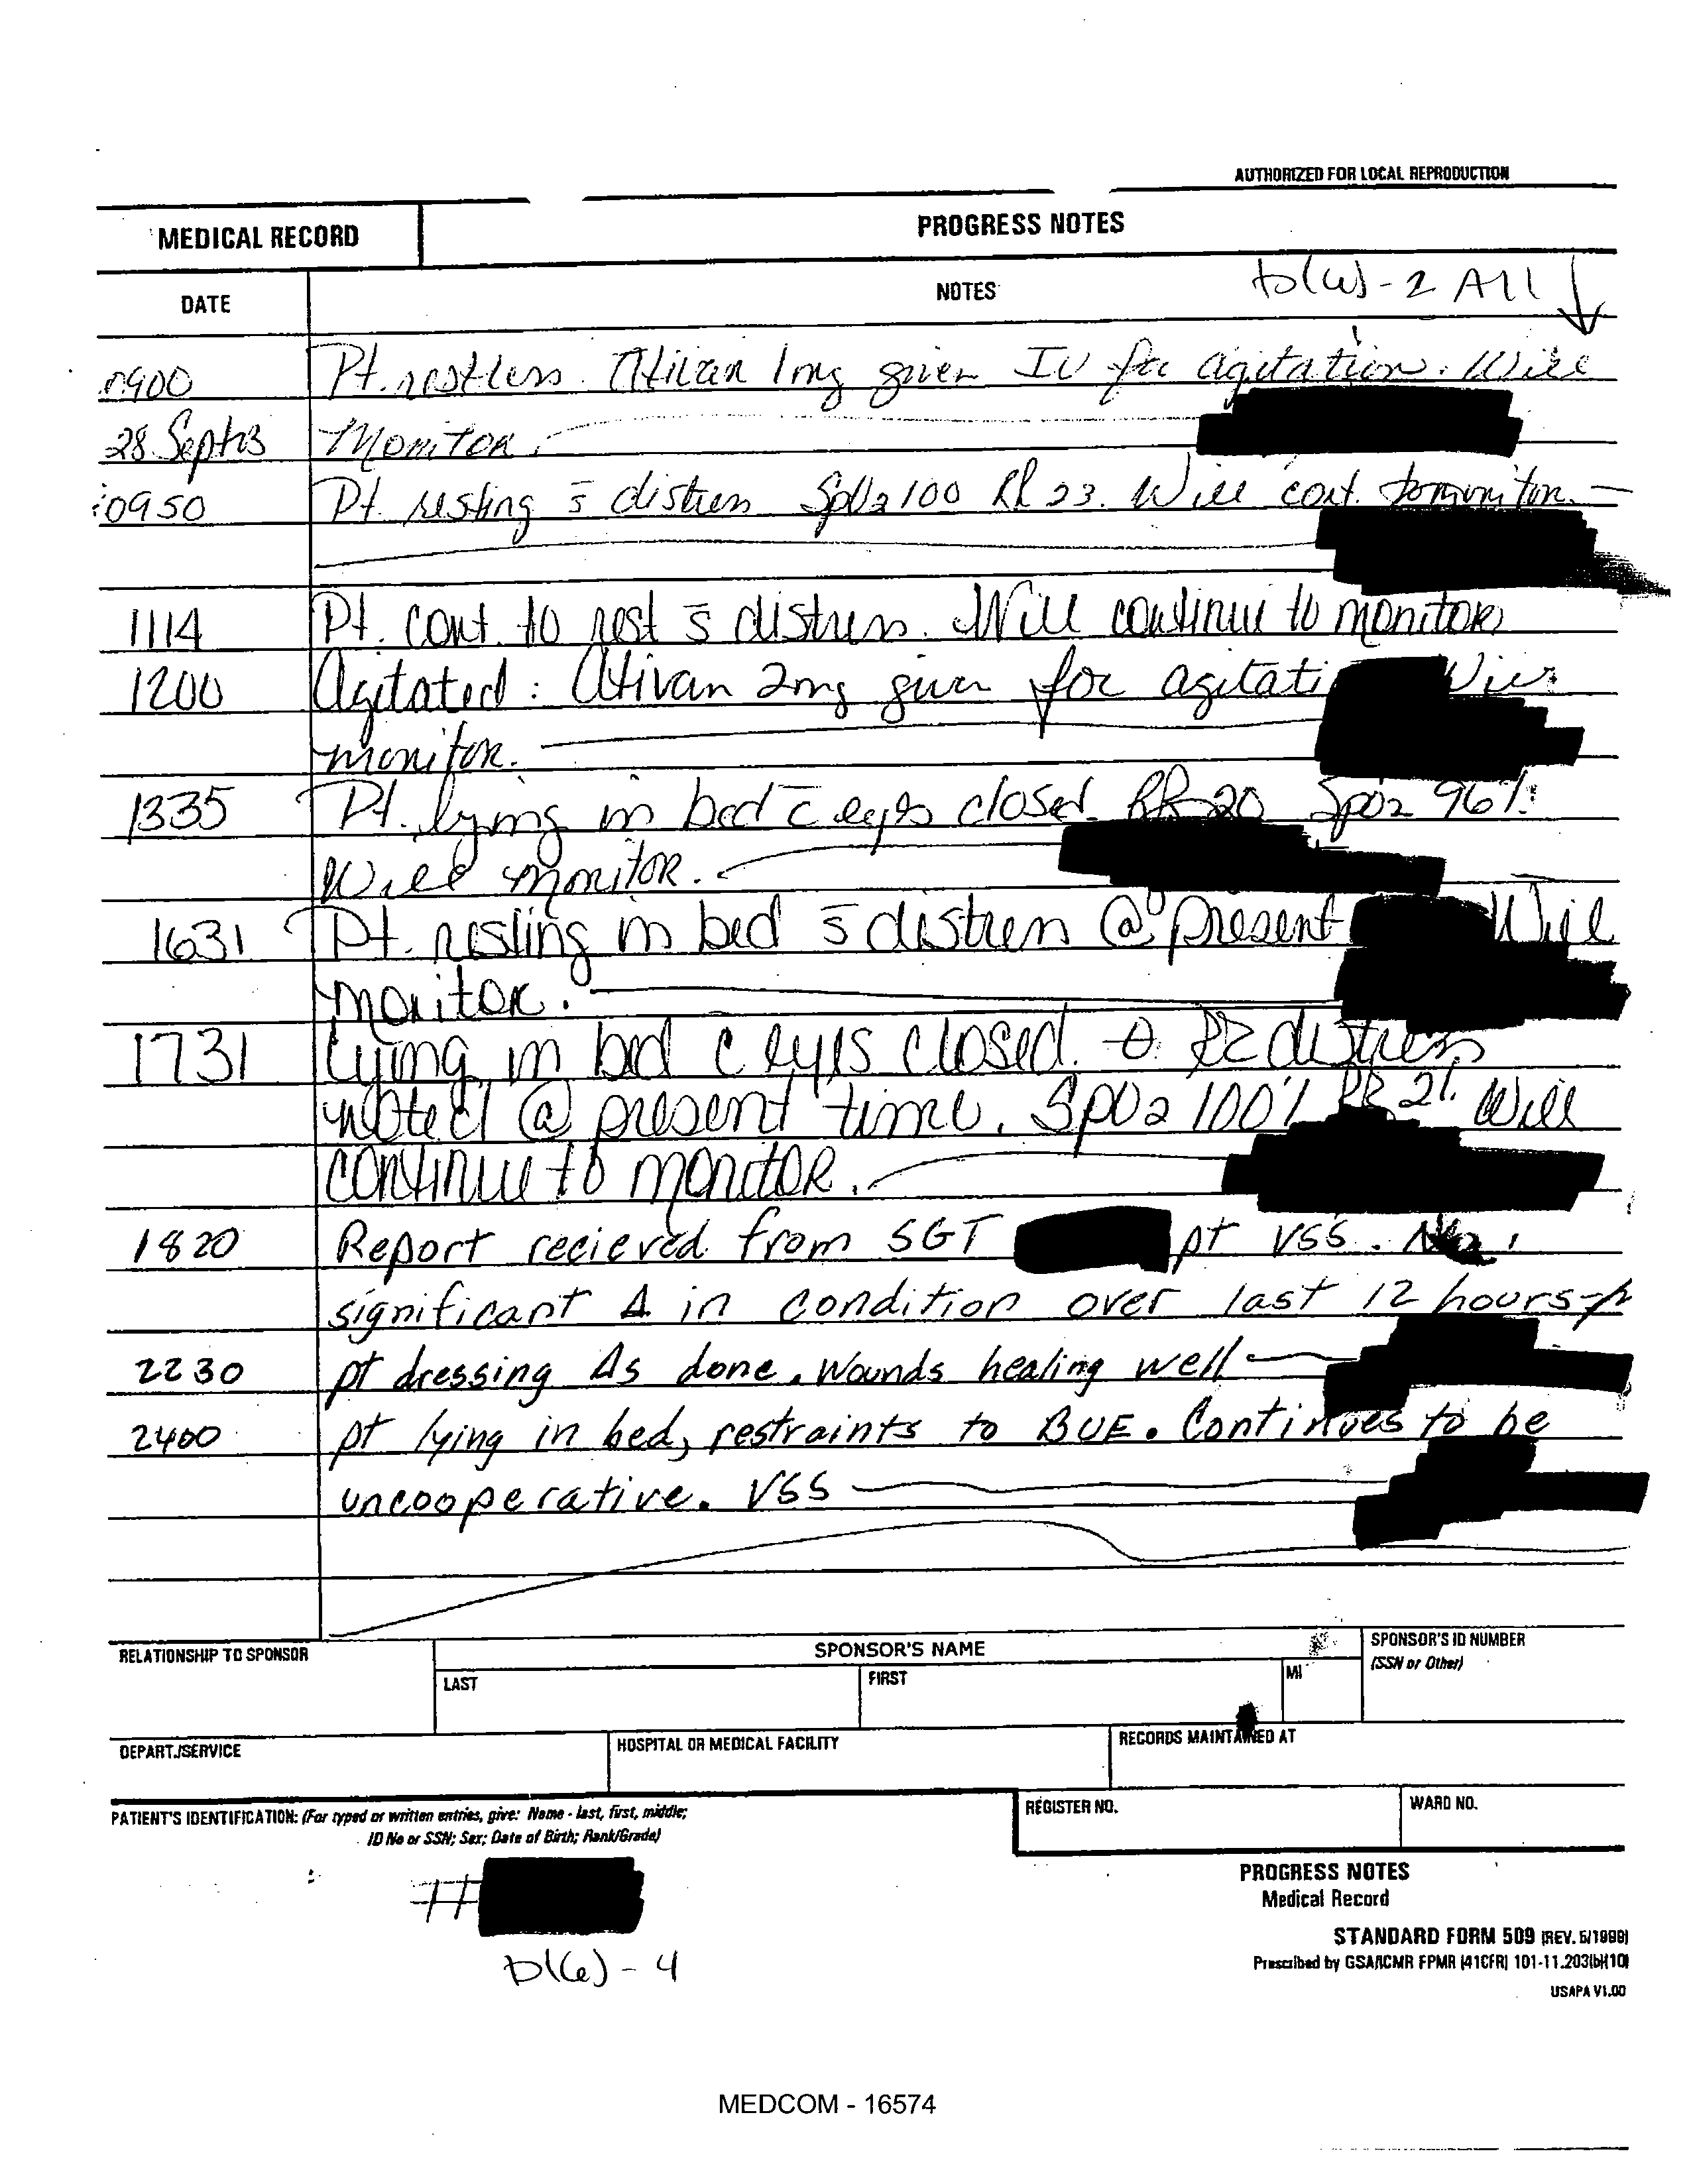 AUTHORIZED FOR LOCAL REPRODUCTION
MEDICAL RECORD
PROGRESS NOTES
DATE
NOTES
b(6)-2 All ↓
0900
Pt. restless. Ativan 1mg given IV for agitation. Will
28 Sept 03
Monitor.
0950
Pt. resting s̄ distress SpO2 100 RR 23. Will cont. to monitor.
1114
Pt. cont. to rest s̄ distress. Will continue to monitor
1200
Agitated: Ativan 2mg given for agitati Will
monitor.
1335
Pt. lying in bed c̄ eyes closed. RR 20 SpO2 96%.
Will monitor.
1631
Pt. resting in bed s̄ distress @ present Will
monitor.
1731
Lying in bed c̄ eyes closed. distress
noted @ present time. SpO2 100% RR 21. Will
continue to monitor.
1820
Report recieved from SGT pt VSS.
significant Δ in condition over last 12 hours
2230
pt dressing Δs done. Wounds healing well
2400
pt lying in bed, restraints to BUE. Continues to be
uncooperative. VSS
RELATIONSHIP TO SPONSOR
SPONSOR'S NAME
SPONSOR'S ID NUMBER
(SSN or Other)
LAST
FIRST
MI
DEPART./SERVICE
HOSPITAL OR MEDICAL FACILITY
RECORDS MAINTAINED AT
PATIENT'S IDENTIFICATION: (For typed or written entries, give: Name - last, first, middle;
ID No or SSN; Sex; Date of Birth; Rank/Grade)
REGISTER NO.
WARD NO.
#
b(6)-4
PROGRESS NOTES
Medical Record
STANDARD FORM 509 (REV. 5/1999)
Prescribed by GSA/ICMR FPMR (41CFR) 101-11.203(b)(10)
USAPA V1.00
MEDCOM - 16574